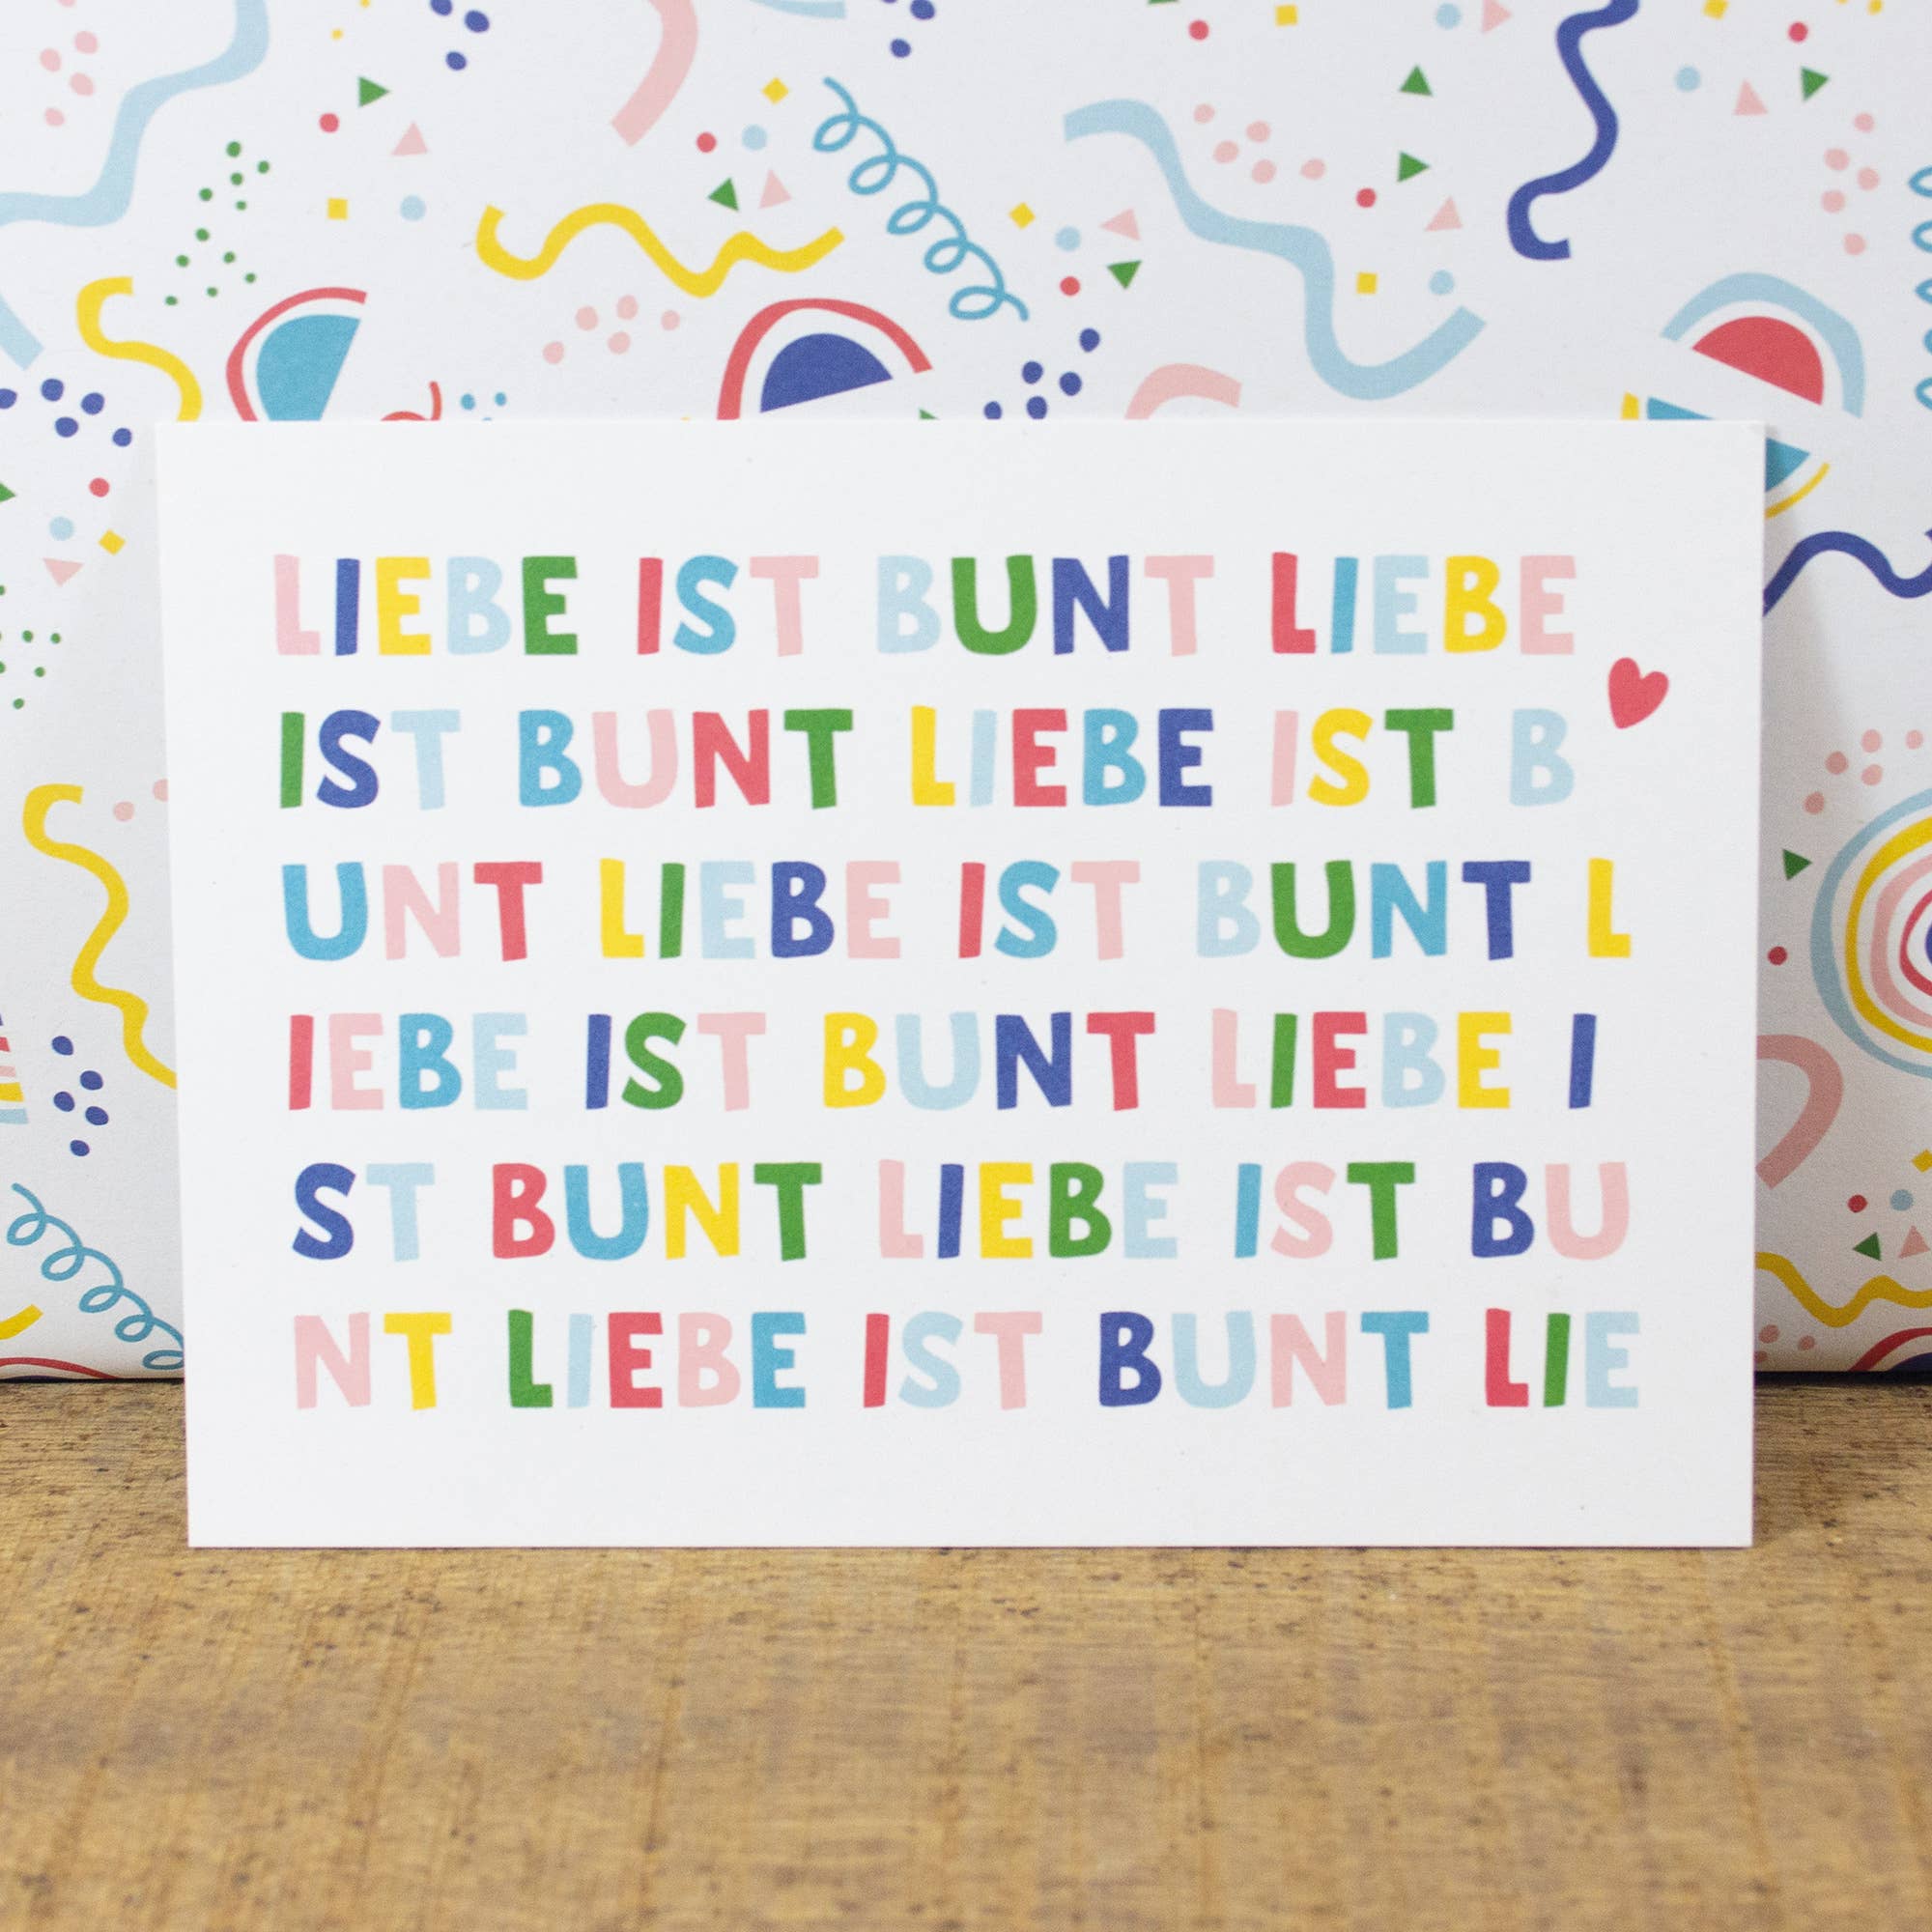 LIEBE IST BUNT LIEBE
IST BUNT LIEBE IST B
UNT LIEBE IST BUNT L
IEBE IST BUNT LIEBE I
ST BUNT LIEBE IST BU
NT LIEBE IST BUNT LIE